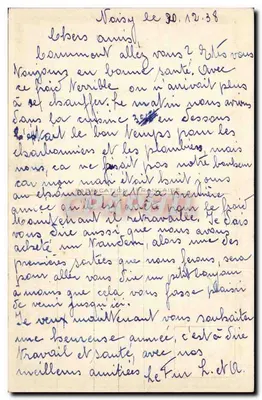 Noisy le 30.12.38
Chers amis
Comment allez vous? Etes vous
toujours en bonne santé, avec
ce froid terrible on n'arrivait plus
à se chauffer. Le matin nous avons
dans la cuisine en dessous
c'était le bon temps pour les
charbonniers et les plombiers, mais
nous, ca ne fesait pas notre bonheur
car mon mari était huit jours
au chomage et la dernière
année le froid
maintenant il retravaille. Je dois
vous dire aussi que nous avons
acheté un tandem, alors une des
premières sorties que nous ferons, sera
pour aller vous dire un petit bonjour
à moins que cela vous fasse plaisir
de venir jusqu'ici.
Je veux maintenant vous souhaiter
une heureuse année, c'est à dire
travail et santé, avec nos
meilleures amitiées
Le Fur L. et A.